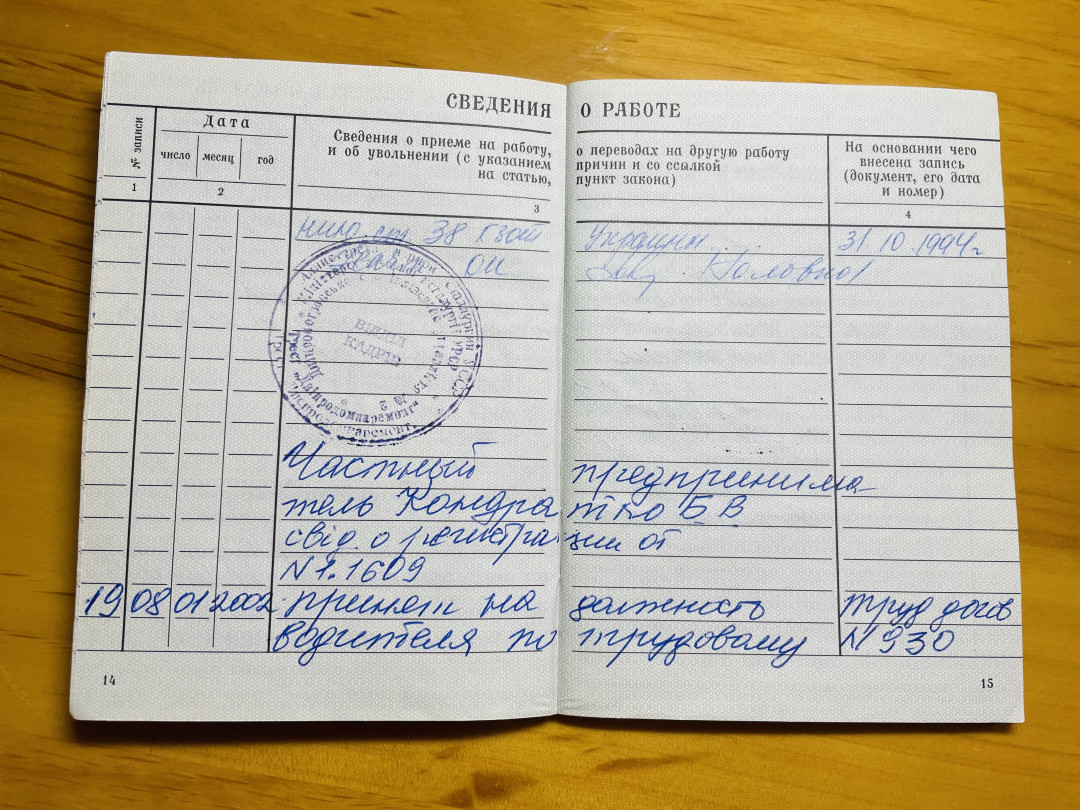 СВЕДЕНИЯ О РАБОТЕ
№ записи
Дата
число месяц год
Сведения о приеме на работу, о переводах на другую работу
и об увольнении (с указанием причин и со ссылкой
на статью, пункт закона)
На основании чего
внесена запись
(документ, его дата
и номер)
1 2 3 4
ст. 38 КЗоТ Украины 31.10.1994г
ВІДДІЛ
КАДРІВ
№ 2
Частный предпринима
тель Кондра тко Б В
свід. о регистра ции от
N 1.1609
19 08 01 2002 принят на должность труд догов
водителя по трудовому N 930
14 15